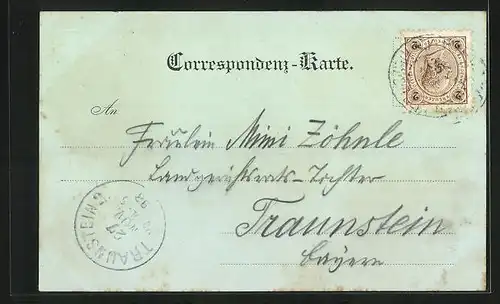 Correspondenz-Karte.
An
Fräulein Mimi Zöhnle
Landgerichtsrats-Tochter
Traunstein
Bayern
TRAUNSTEIN
27
NOV
98
2
2